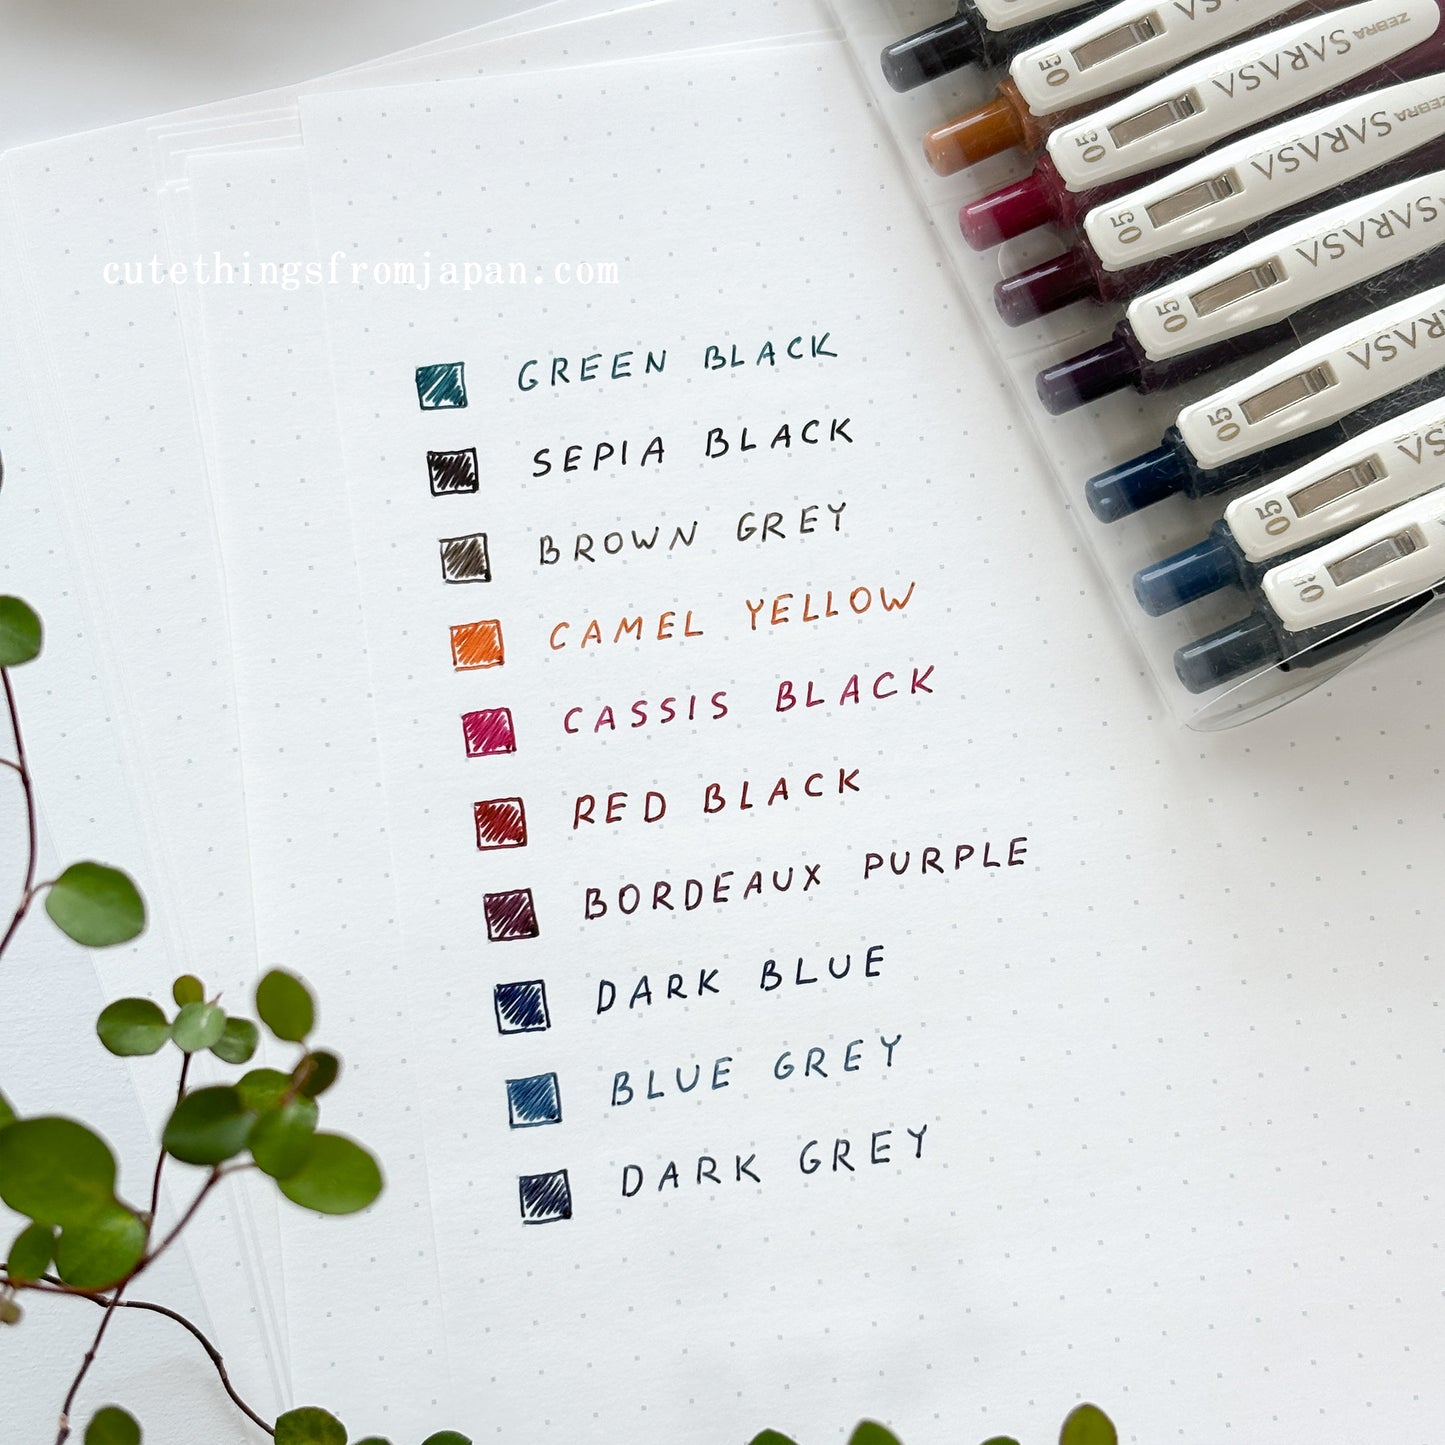 cutethingsfromjapan.com
GREEN BLACK
SEPIA BLACK
BROWN GREY
CAMEL YELLOW
CASSIS BLACK
RED BLACK
BORDEAUX PURPLE
DARK BLUE
BLUE GREY
DARK GREY
05
05 SARASA ZEBRA
05 SARASA ZEBRA
05 SARASA
05 SARASA
05